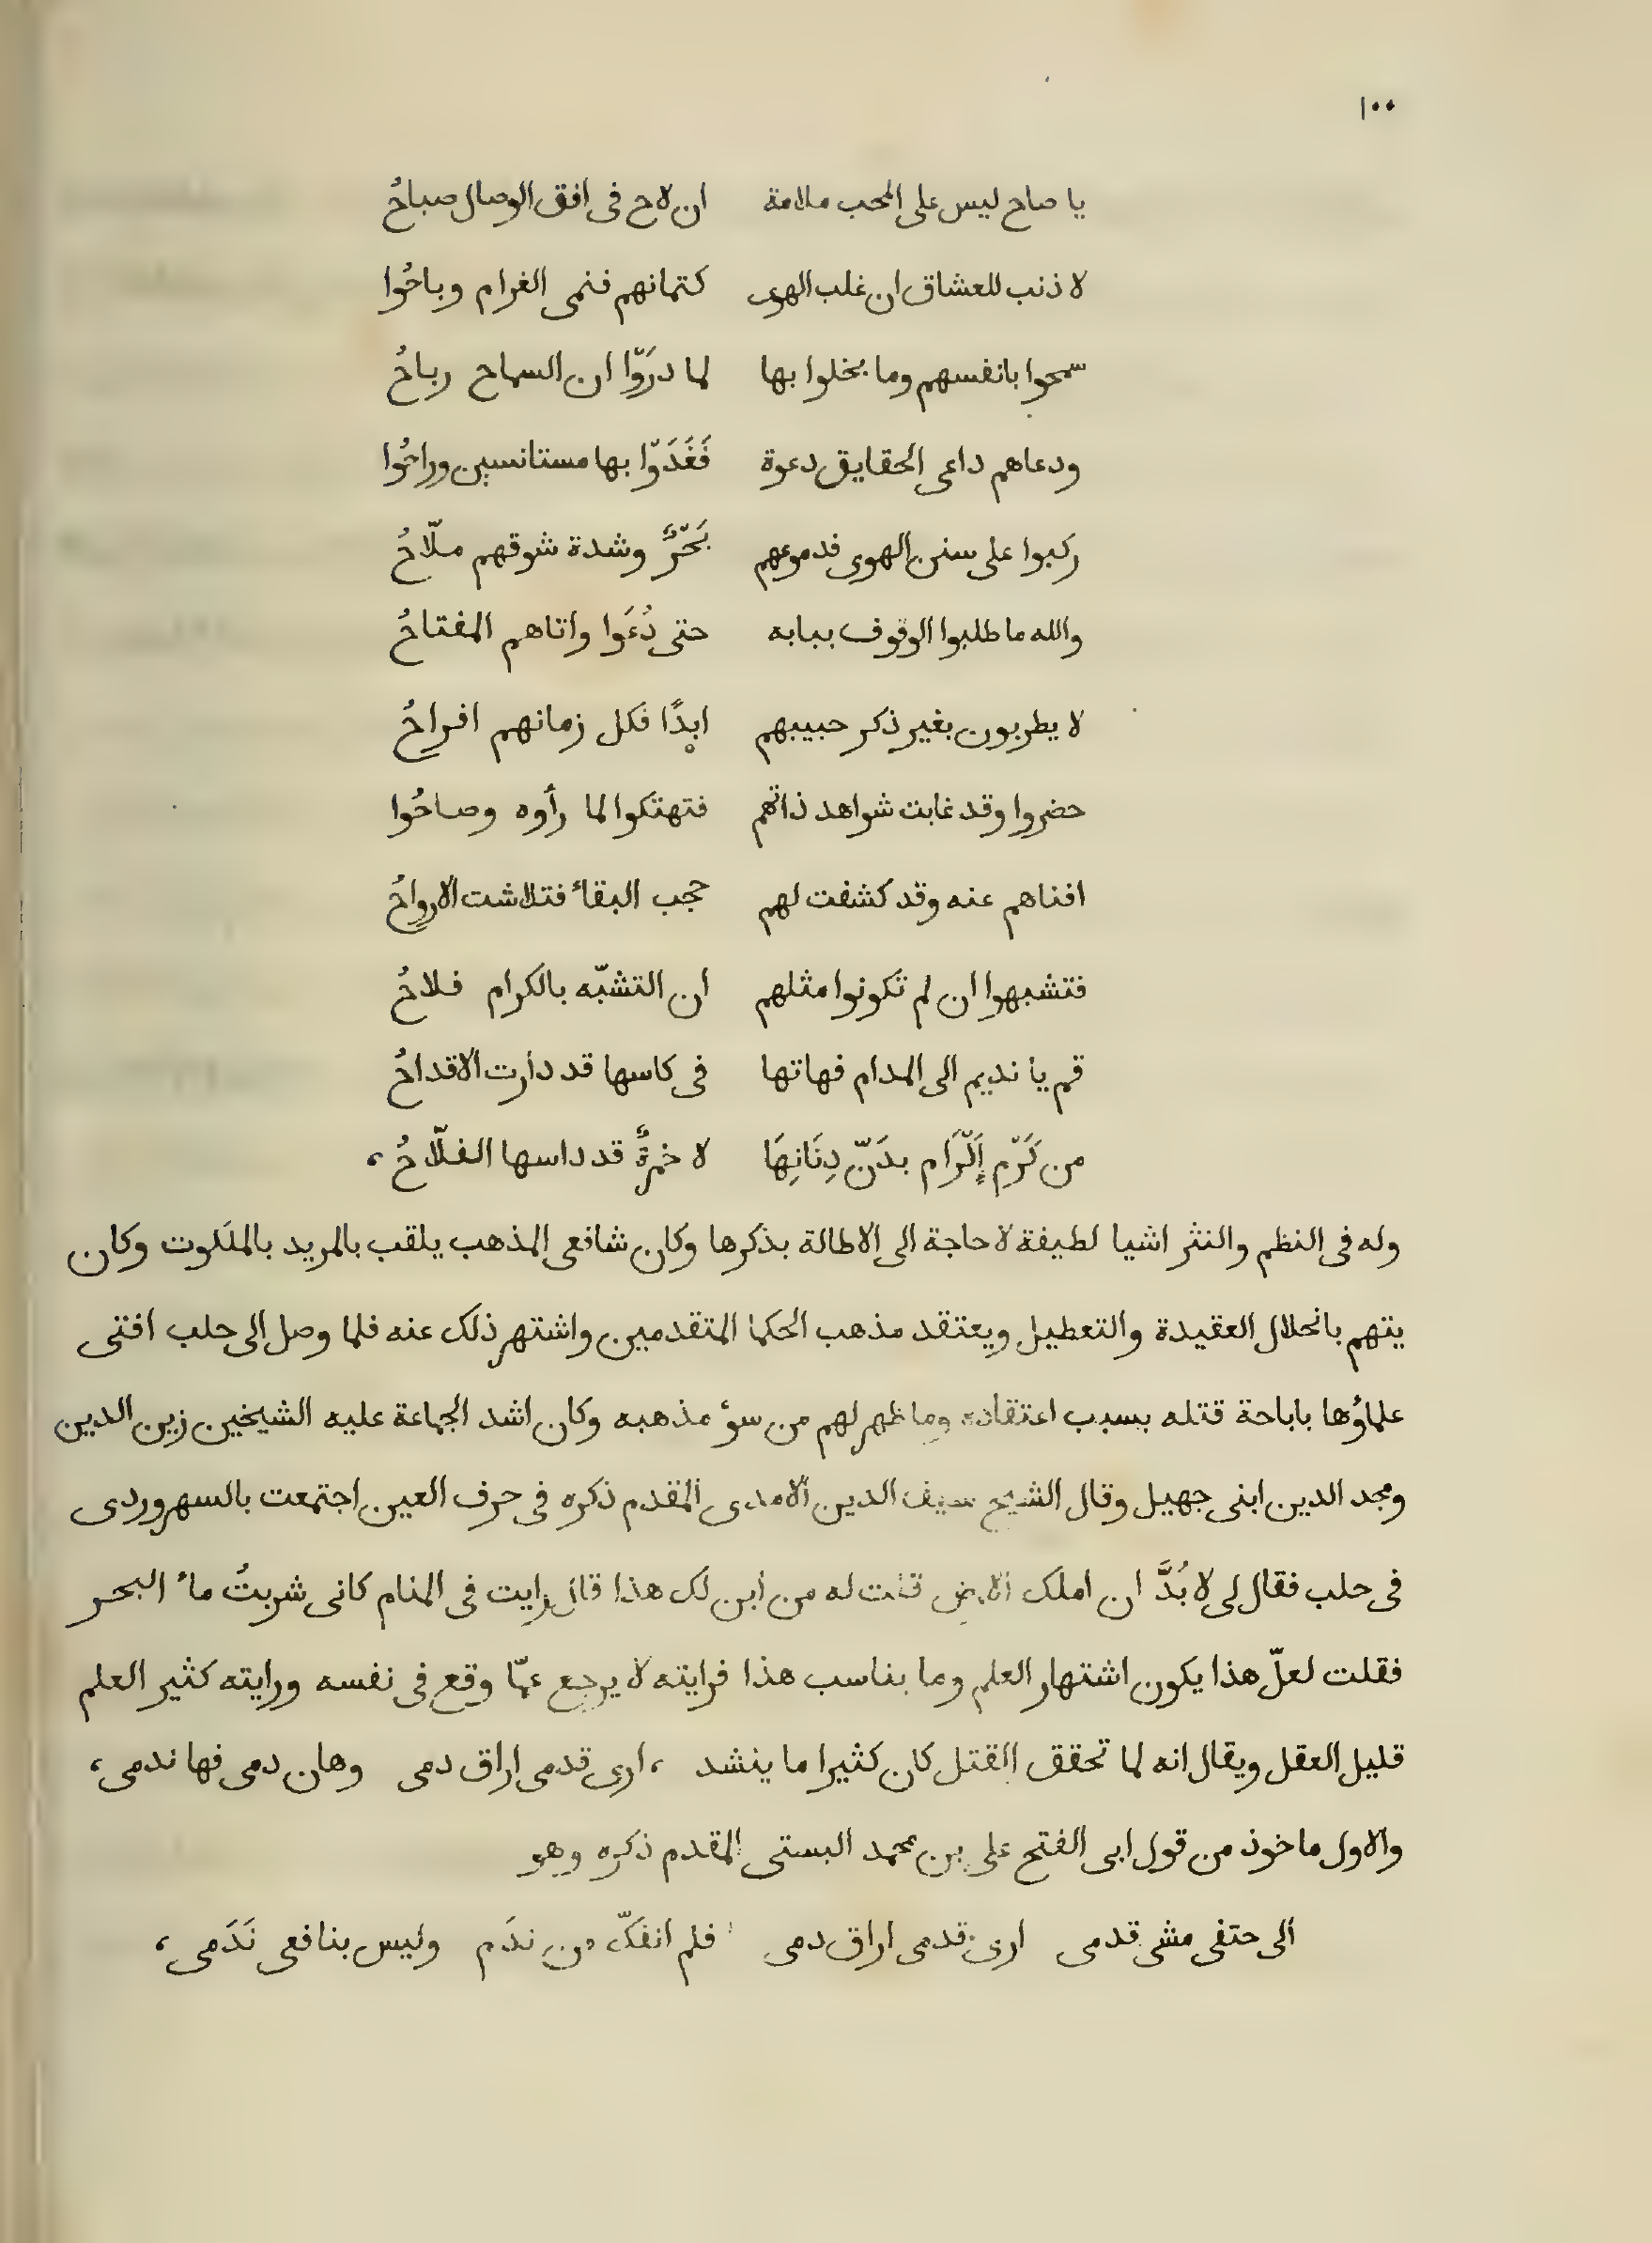 ١٠٠
يا صاح ليس على المحب ملامة ان لاح فى افق الوصال صباحُ
لا ذنب للعشاق ان غلب الهوى كتمانهم فنمى الغرام وباحُوا
سمحوا بانفسهم وما بخلوا بها لما درَوّا ان السماح رباحُ
ودعاهم داعى الحقايق دعوة فَغَدَوّا بها مستانسين وراحُوا
ركبوا على سنن الهوى فدموعهم بَحّرٌ وشدة شوقهم ملّاحُ
والله ما طلبوا الوقوف ببابه حتى دُعَوا واتاهم المفتاحُ
لا يطربون بغير ذكر حبيبهم ابدًا فكل زمانهم افراحُ
حضروا وقد غابت شواهد ذاتهم فتهتكوا لما رأوه وصاحُوا
افناهم عنه وقد كشفت لهم حجب البقاء فتلاشت الارواحُ
فتشبهوا ان لم تكونوا مثلهم ان التشبّه بالكرام فلاحُ
قم يا نديم الى المدام فهاتها فى كاسها قد دارت الاقداحُ
من كَرّم إكّرَام بدَنّ دِنَانِهَا لا خمرةٌ قد داسها الفلّاحُ،
وله فى النظم والنثر اشيا لطيفة لا حاجة الى الاطالة بذكرها وكان شافعى المذهب يلقب بالمريد بالملَكوت وكان
يتهم بانحلال العقيدة والتعطيل ويعتقد مذهب الحكما المتقدمين واشتهر ذلك عنه فلما وصل الى حلب افتى
علماؤها باباحة قتله بسبب اعتقاده وما ظهر لهم من سوء مذهبه وكان اشد الجماعة عليه الشيخين زين الدين
ومجد الدين ابنى جهيل وقال الشيخ سيف الدين الامدى المقدم ذكره فى حرف العين اجتمعت بالسهروردى
فى حلب فقال لى لا بُدَّ ان املك الارض قلت له من اين لك هذا قال رايت فى المنام كانى شربتُ ماء البحر
فقلت لعلّ هذا يكون اشتهار العلم وما يناسب هذا فرايته لا يرجع عمّا وقع فى نفسه ورايته كثير العلم
قليل العقل ويقال انه لما تحقق القتل كان كثيرا ما ينشد ، ارى قدمى اراق دمى وهان دمى فها ندمى،
والاول ماخوذ من قول ابى الفتح على بن محمد البستى المقدم ذكره وهو
الى حتفى مشى قدمى ارى قدمى اراق دمى فلم انفكّ من ندَم وليس بنافعى نَدَمى،